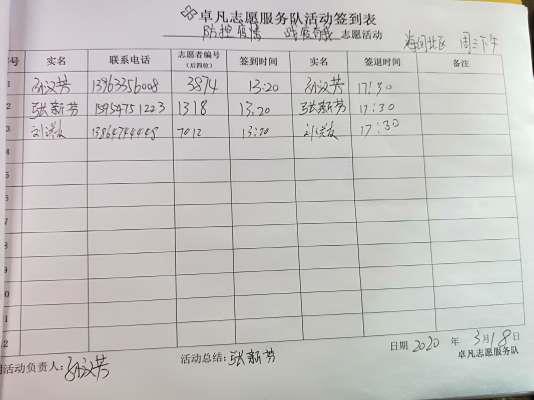 卓凡志愿服务队活动签到表
防控疫情 战疫有我 志愿活动 周三下午
号 实名 联系电话 志愿者编号(后四位) 签到时间 实名 签退时间 备注
1 孙汉芳 13963356008 3874 13:20 孙汉芳 17:30
2 张新芳 15954751223 1318 13:20 张新芳 17:30
3 7012 13:20 17:30
4
5
6
7
8
9
10
11
12
日期 2020 年 3月18日
活动负责人: 孙汉芳 活动总结: 张新芳 卓凡志愿服务队